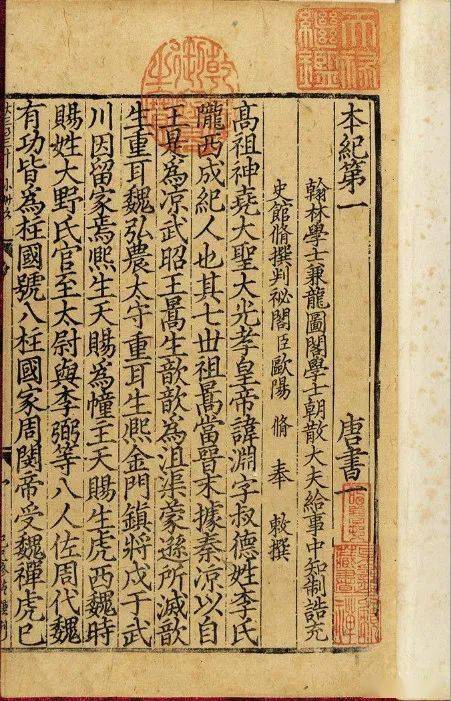 本紀第一 唐書一
翰林學士兼龍圖閣學士朝散大夫給事中知制誥充
史館脩撰判祕閣臣歐陽 脩 奉 敕撰
高祖神堯大聖大光孝皇帝諱淵字叔德姓李氏
隴西成紀人也其七世祖暠當晉末據秦涼以自
王是爲涼武昭王暠生歆歆爲沮渠蒙遜所滅歆
生重耳魏弘農太守重耳生熙金門鎮將戍于武
川因留家焉熙生天賜爲幢主天賜生虎西魏時
賜姓大野氏官至太尉與李弼等八人佐周代魏
有功皆爲柱國號八柱國家周閔帝受魏禪虎已
天祿繼鑑